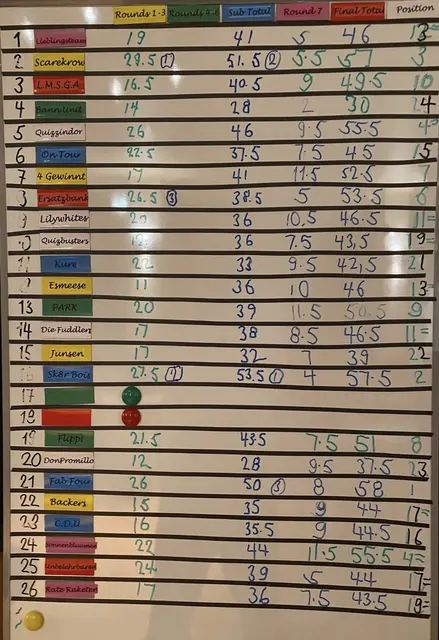 Rounds 1-3 Rounds 4-6 Sub Total Round 7 Final Total Position
1 Lieblingsteam 19 41 5 46 13=
2 Scarekrow 29.5 ① 51.5 ② 5.5 57 3
3 L.M.S.G.A 16.5 40.5 9 49.5 10
4 14 28 2 30 24
5 Quizzindor 26 46 9.5 55.5 4=
6 On Tour 22.5 37.5 7.5 45 15
7 4 Gewinnt 17 41 11.5 52.5 7
Ersatzbank 26.5 ③ 38.5 5 53.5 6
Lilywhites 36 10,5 46.5 11=
Quizbusters 36 7.5 43,5 19=
Kure 22 33 9.5 42,5 21
Esmeese 11 36 10 46 13=
13 PARK 20 39 11.5 50.5 9
14 Die Fuddler 17 38 8.5 46.5 11=
15 Junsen 17 32 7 39 22
16 Sk8r Bois 27.5 53.5 ① 4 57.5 2
17
18
19 Flippi 21.5 43.5 7.5 51 8
20 DonPromillo 12 28 9.5 37.5 23
21 Fab Four 26 50 ③ 8 58 1
22 Backers 15 35 9 44 17=
23 E.D.U 16 35.5 9 44.5 16
24 22 44 11.5 55.5 4=
25 Unbelehrbaren 24 39 5 44 17=
26 Rate Raketen 17 36 7.5 43.5 19=